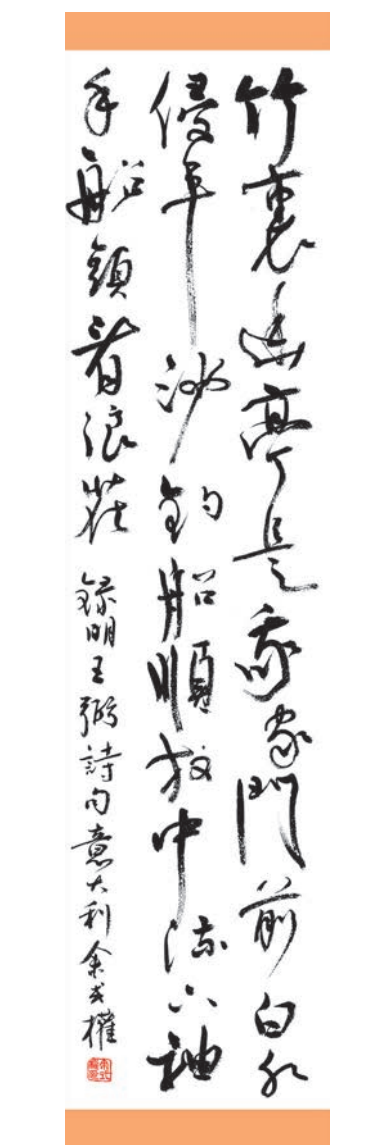 竹裏幽亭是我家門前白水
侵平沙釣船順放中流去袖
手船頭看浪花
錄明王弼詩句意大利余權